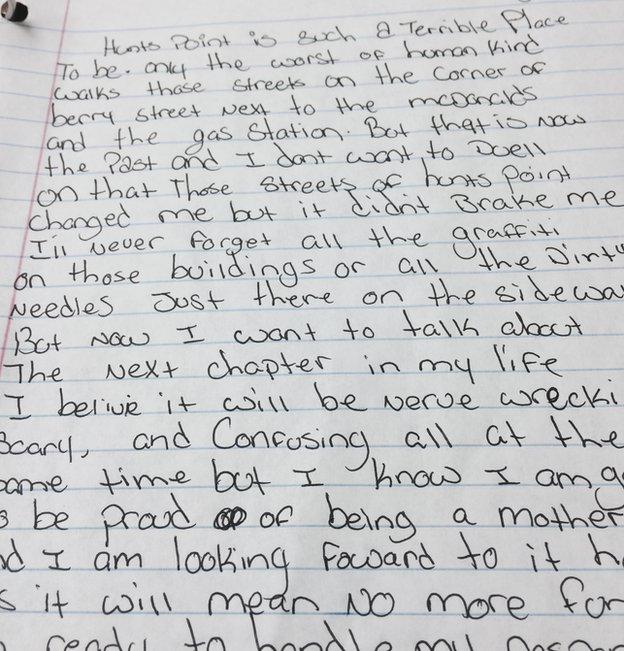 Hunts Point is such a Terrible Place
To be. only the worst of human kind
walks those streets on the corner of
berry street Next to the mcdonalds
and the gas station. But that is Now
the Past and I dont want to Dwell
on that Those streets of hunts point
changed me but it didnt Brake me
I'll Never forget all the graffiti
on those buildings or all the Dirty
Needles Just there on the sidewa
But Now I want to talk about
The Next chapter in my life
I belive it will be Nerve wrecki
Scary, and Confusing all at the
same time but I know I am g
be proud of being a mother
I am looking Foward to it h
it will mean No more fun
ready to handle my